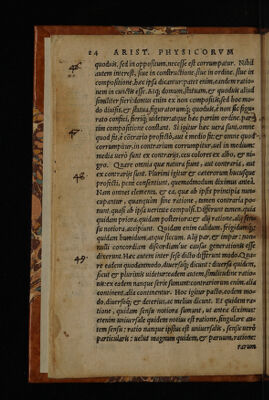 24 ARIST. PHYSICORVM
quoduis, sed in oppositum, necesse est corrumpatur. Nihil
autem interest, siue in constructione, siue in ordine, siue in
compositione, hæc ipsa dicantur: patet enim, eandem ratio-
nem in cunctis esse. Atqui domum, statuam, & quoduis aliud
similiter fieri: domus enim ex non compositis, sed hoc mo-
do diuisis, & statua, figuratorumq; quoduis, è non sic figu-
rato confici, fierique uidetur: atque hæc partim ordine, par-
tim compositione constant. Si igitur hæc uera sunt, omne
quod fit, è contrario profectò, aut è medio fit: & omne quod
corrumpitur, in contrarium corrumpitur, uel in medium:
media uerò sunt ex contrarijs, ceu colores ex albo, & ni-
gro. Quare omnia quæ natura sunt, aut contraria, aut
ex contrarijs sunt. Plurimi igitur & cæterorum hucusque
profecti, penè consentiunt, quemadmodum diximus anteà.
Nam omnes elementa, & ea, quæ ab ipsis principia nun-
cupantur, quanquam sine ratione, tamen contraria po-
nunt, quasi ab ipsa ueritate compulsi. Differunt tamen, quia
quidam priora, quidam posteriora: & alij ratione, alij sen-
su notiora, accipiunt. Quidam enim calidum, frigidumq;:
quidam humidum, atque siccum. Alij par, & impar: non-
nulli concordiam discordiam'ue causas generationis esse
dixerunt. Hæc autem inter sese dicto differunt modo. Qua-
re eadem quodammodo, diuersaq; dicunt: diuersa quidem,
sicut & plurimis uidetur: eadem autem, similitudine ratio-
nis: ex eadem nanque serie sumunt: contrariorum enim, alia
continent, alia continentur. Hoc igitur pacto, eodem mo-
do, diuersoq;, & deterius, ac melius dicunt. Et quidem ra-
tione, quidam sensu notiora sumunt, ut antea diximus:
etenim uniuersale quidem notius est ratione, singulare au-
tem sensu: ratio nanque ipsius est uniuersalis, sensus uerò
particularis: uelut magnum quidem, & paruum, ratione:
rarum
46
47
48
49